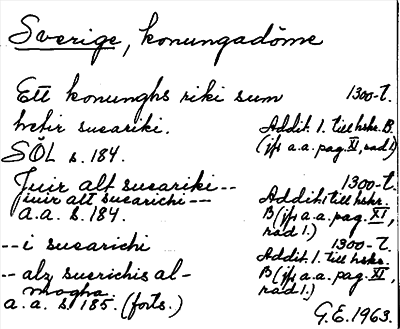 Sverige, konungadöme
Ett konunghs riki sum 1300-t.
hetir sueariki. Addit. 1. till hskr. B.
SÖL s. 184. (jfr a.a. pag. XI, rad 1.)
Iuir alt sueariki-- 1300-t.
iuir alt suearichi-- Addit. 1 till hskr.
a.a. s. 184. B (jfr a.a. pag. XI,
rad 1.)
--i suearichi 1300-t.
Addit. 1. till hskr.
-- alz suerichis al- B (jfr a.a. pag. XI,
mogha. rad 1.)
a.a. s. 185. (forts.)
G.E. 1963.